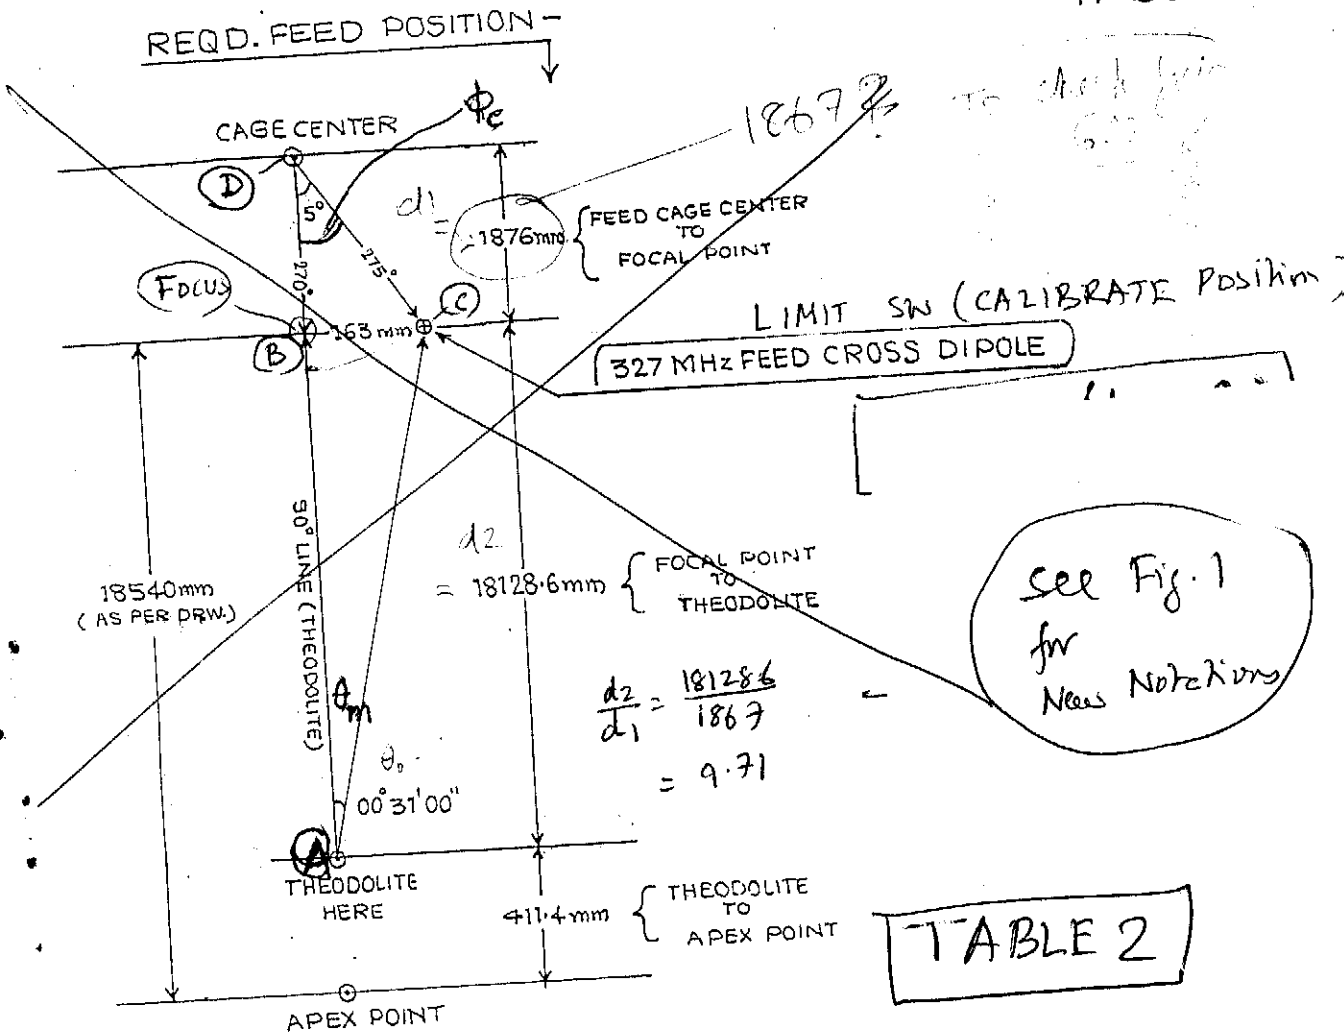 REQD. FEED POSITION -
CAGE CENTER
ϕc
1867?
To check from
D
5°
d1
= 1876mm
FEED CAGE CENTER
TO
FOCAL POINT
270°
275°
FOCUS
C
163 mm
B
LIMIT SW (CALIBRATE Position)
327 MHz FEED CROSS DIPOLE
90° LINE (THEODOLITE)
18540mm
(AS PER DRW.)
d2
= 18128.6mm
FOCAL POINT
TO
THEODOLITE
See Fig. 1
for
New Notations
d2/d1 = 18128.6/1867
= 9.71
θm
θ0
00°31'00"
A
THEODOLITE
HERE
411.4mm
THEODOLITE
TO
APEX POINT
TABLE 2
APEX POINT